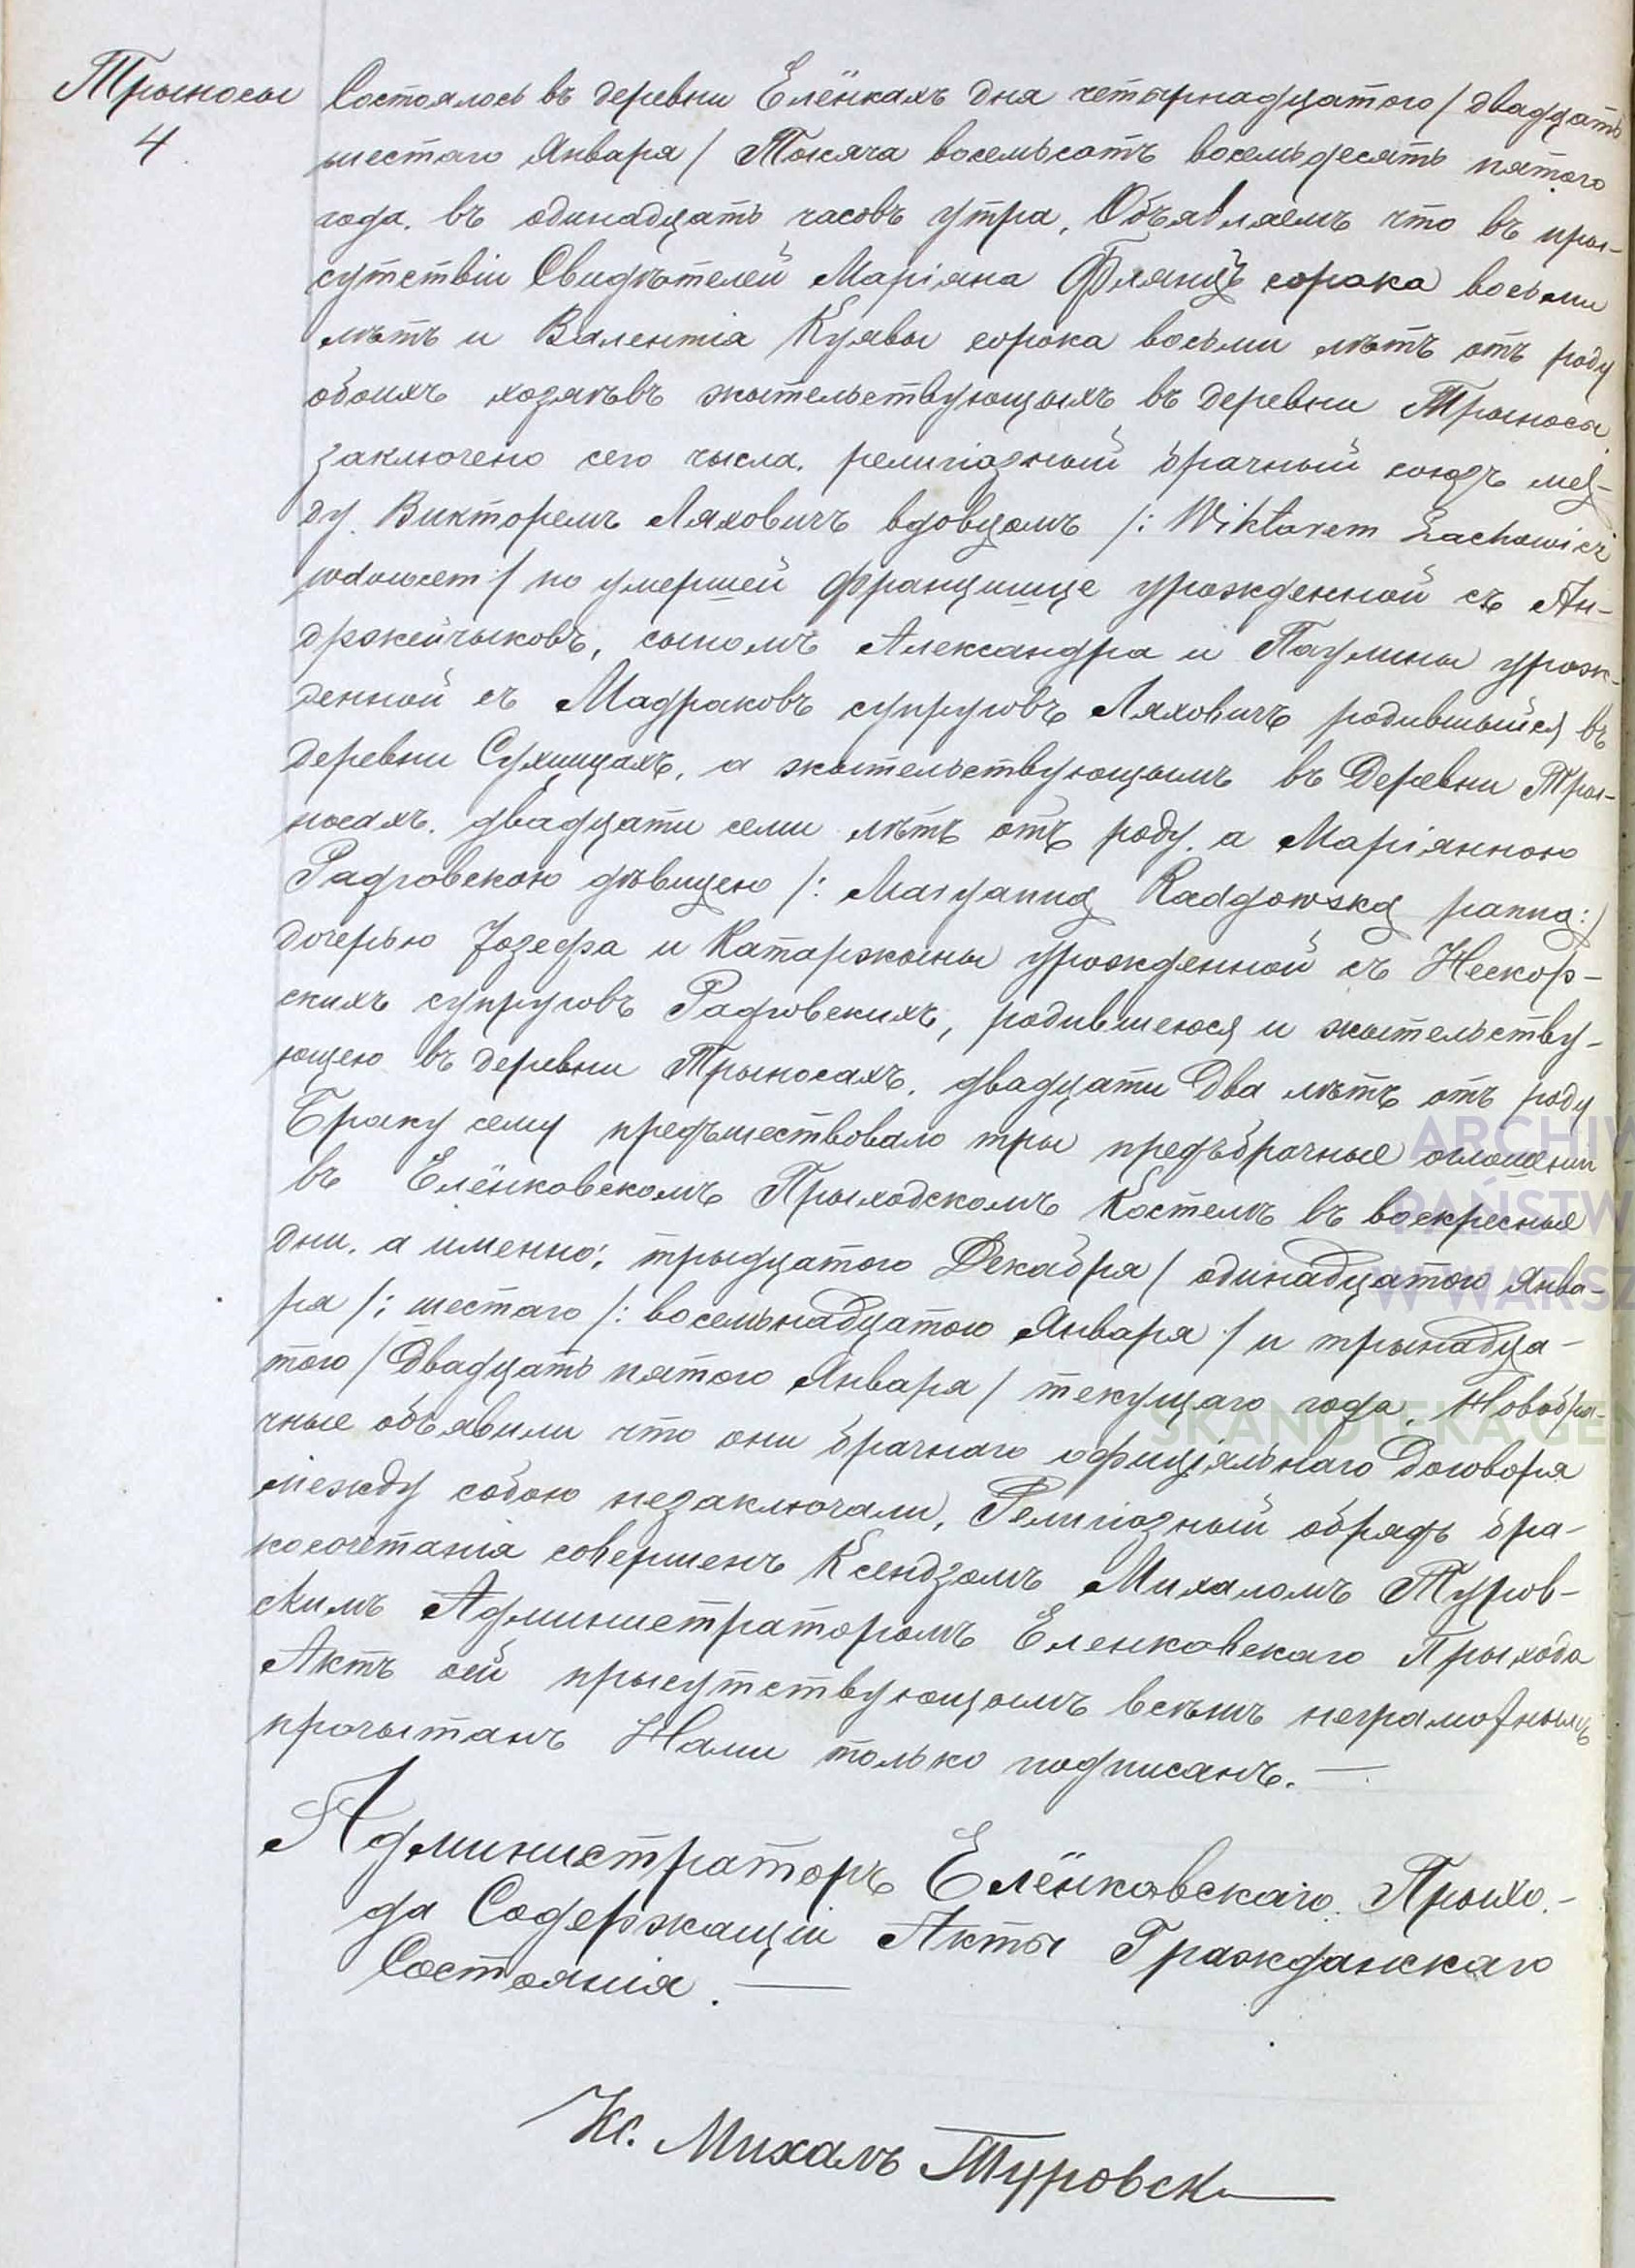 Трыносы
4
Состоялось въ деревни Елёнкахъ дня четырнадцатого / двадцать
шестаго Января / Тысяча восемьсотъ восемьдесятъ пятого
года, въ одинадцать часовъ утра, Объявляемъ что въ при-
сутствіи Свидѣтелей Маріяна сорока восьми
лѣтъ и Валентія Куявы сорока восьми лѣтъ отъ роду
обоихъ хозяевъ жытельствующыхъ въ деревни Трыносы
заключено сего чысла, религіозный брачный союзъ меж-
ду Викторемъ Ляховичъ вдовцомъ /: Wiktorem Lachowicz
wdowcem :/ по умершей Францишце урожденной съ Ан-
држейчыковъ, сыномъ Александра и Паулины урож-
денной съ Мадраковъ супруговъ Ляховичъ родившыйся въ
деревни Сухцицахъ, а жытельствующымъ въ Деревни Тры-
носахъ, двадцати семи лѣтъ отъ роду, а Маріянною
Радговскою дѣвицею /: Maryanną Radgowską panną :/
дочерью Іозефа и Катаржыны урожденной съ Нескор-
скихъ супруговъ Радговскихъ, родившеюся и жытельству-
ющею въ деревни Трыносахъ, двадцати два лѣтъ отъ роду
Браку сему предъшествовало тры предъбрачные оглошении
въ Елёнковскомъ Прыходскомъ Костелѣ въ воскресные
дни, а именно: трыдцатого Декабря / одинадцатого Янва-
ря /: шестаго /: восемьнадцатого Января / и трынадца-
того / Двадцать пятого Января / текущаго года. Новобра-
чные объявили что они брачнаго офиціяльнаго Договора
между собою незаключали, Религіозный обрядъ бра-
косочетанія совершенъ Ксендзомъ Михаломъ Туров-
скимъ Администраторомъ Еленковскаго Прыхода
Актъ сей прысутствующымъ всѣмъ неграмотнымъ
прочытанъ Нами только подписанъ. —
Администраторъ Елёнковскаго Прыхо-
да Содержащій Акты Гражданскаго
Состоянія. —
Кс. Михалъ Туровски
ARCHIW
PAŃSTW
W WARSZ
SKANOTEKA.GEN